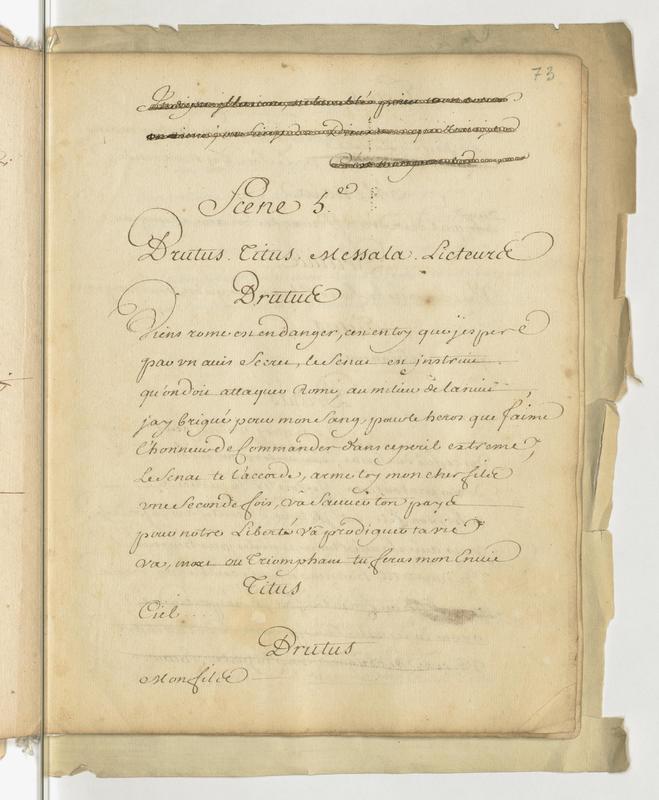 73
Scene 5.e
Brutus. Titus. Messala. Licteurs
Brutus
Viens rome est en danger, c'en en toy que j'espere
par un avis secret, le Senat en instruit
qu'on doit attaquer Rome, au milieu de la nuit
jay brigué pour mon sang, pour le heros que j'aime
l'honneur de Commander dans ce peril extreme,
Le Senat te l'accorde, arme toy mon cher fils
une seconde fois, va sauver ton pays
pour notre Liberté va prodiguer ta vie
va, mort ou Triomphant tu feras mon Envie
Titus
Ciel...
Brutus
Mon fils